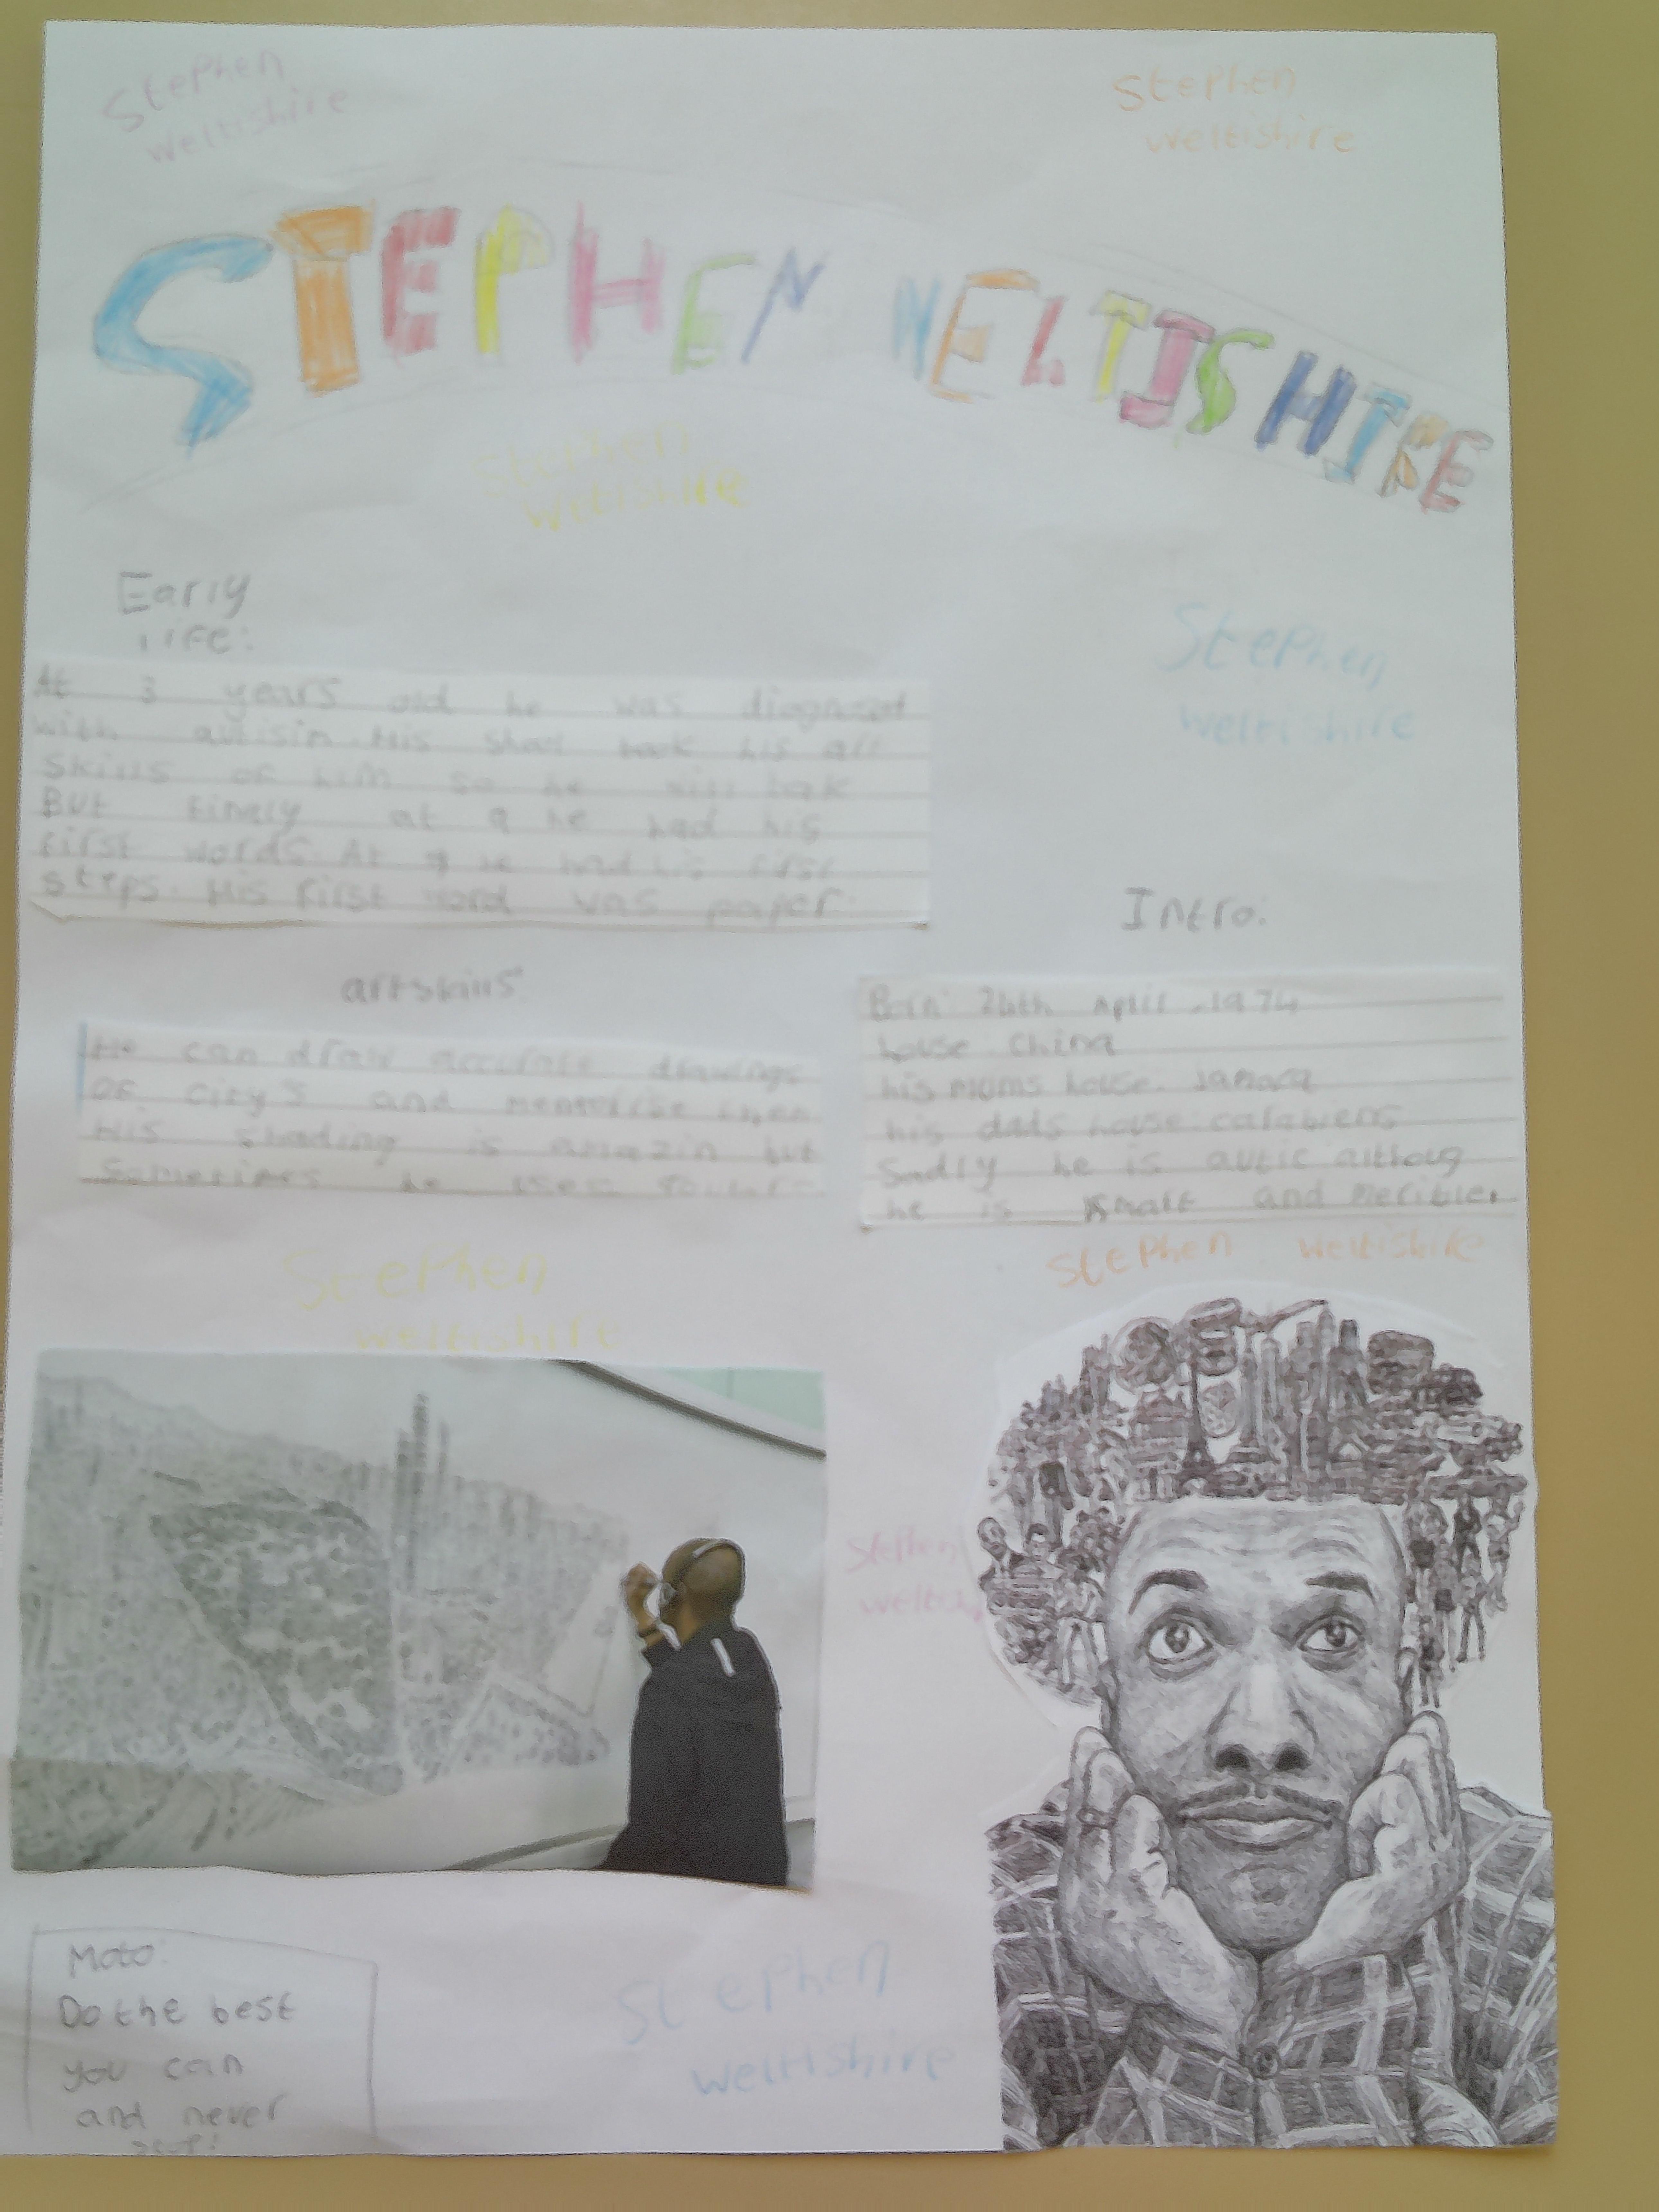 Stephen
Weltishire
Stephen
Weltishire
STEPHEN WELTISHIRE
Stephen
Weltishire
Early
life:
At 3 years old he was diagnosed
with autisim. His shool took his art
skills of him so he will talk
But finely at 9 he had his
first words. At he had his first
steps. His first word was paper.
Stephen
Weltishire
Intro:
Born: 24th April -1974
house: China
his mums house: Jamaca
his dads house: carabiens
Sadly he is autic althoug
he is smart and
artskills
He can draw accurate drawings
of city's and them
His shading is amazin but
Sometimes he uses
Stephen
Weltishire
Stephen Weltishire
Stephen
Moto:
Do the best
you can
and never
stop!
Stephen
Weltishire